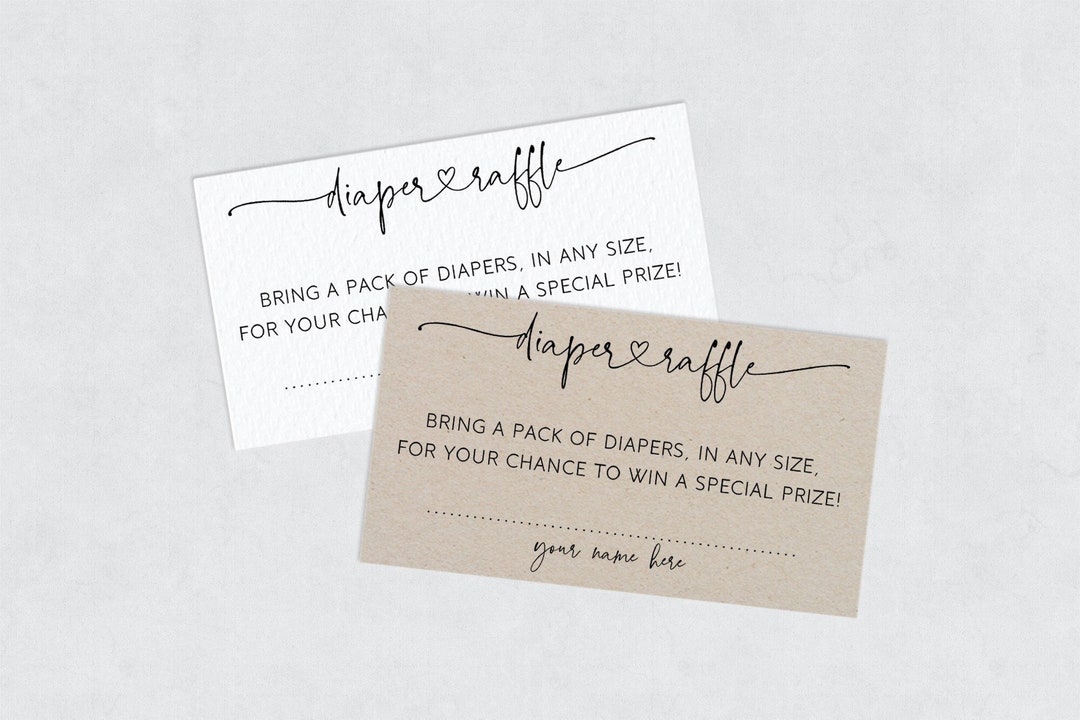 diaper raffle
BRING A PACK OF DIAPERS, IN ANY SIZE,
FOR YOUR CHA WIN A SPECIAL PRIZE!
diaper raffle
BRING A PACK OF DIAPERS, IN ANY SIZE,
FOR YOUR CHANCE TO WIN A SPECIAL PRIZE!
your name here